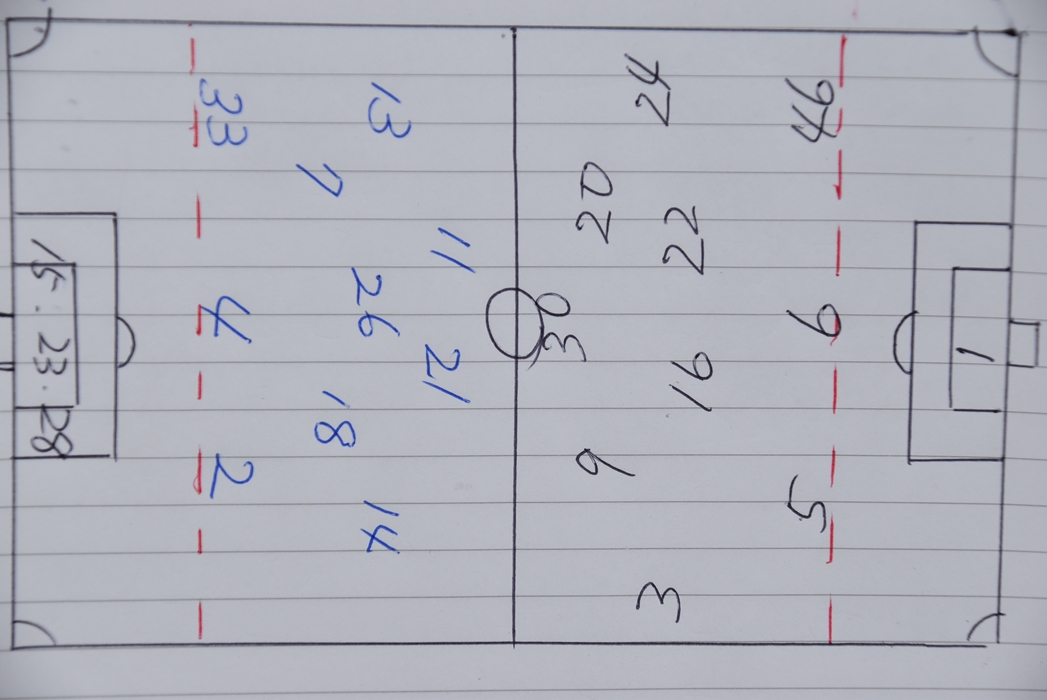 11 21
13 26 14
7 18
33 4 2
15 . 23 . 28
9 30 20
3 24
16 22
5 6 46
1